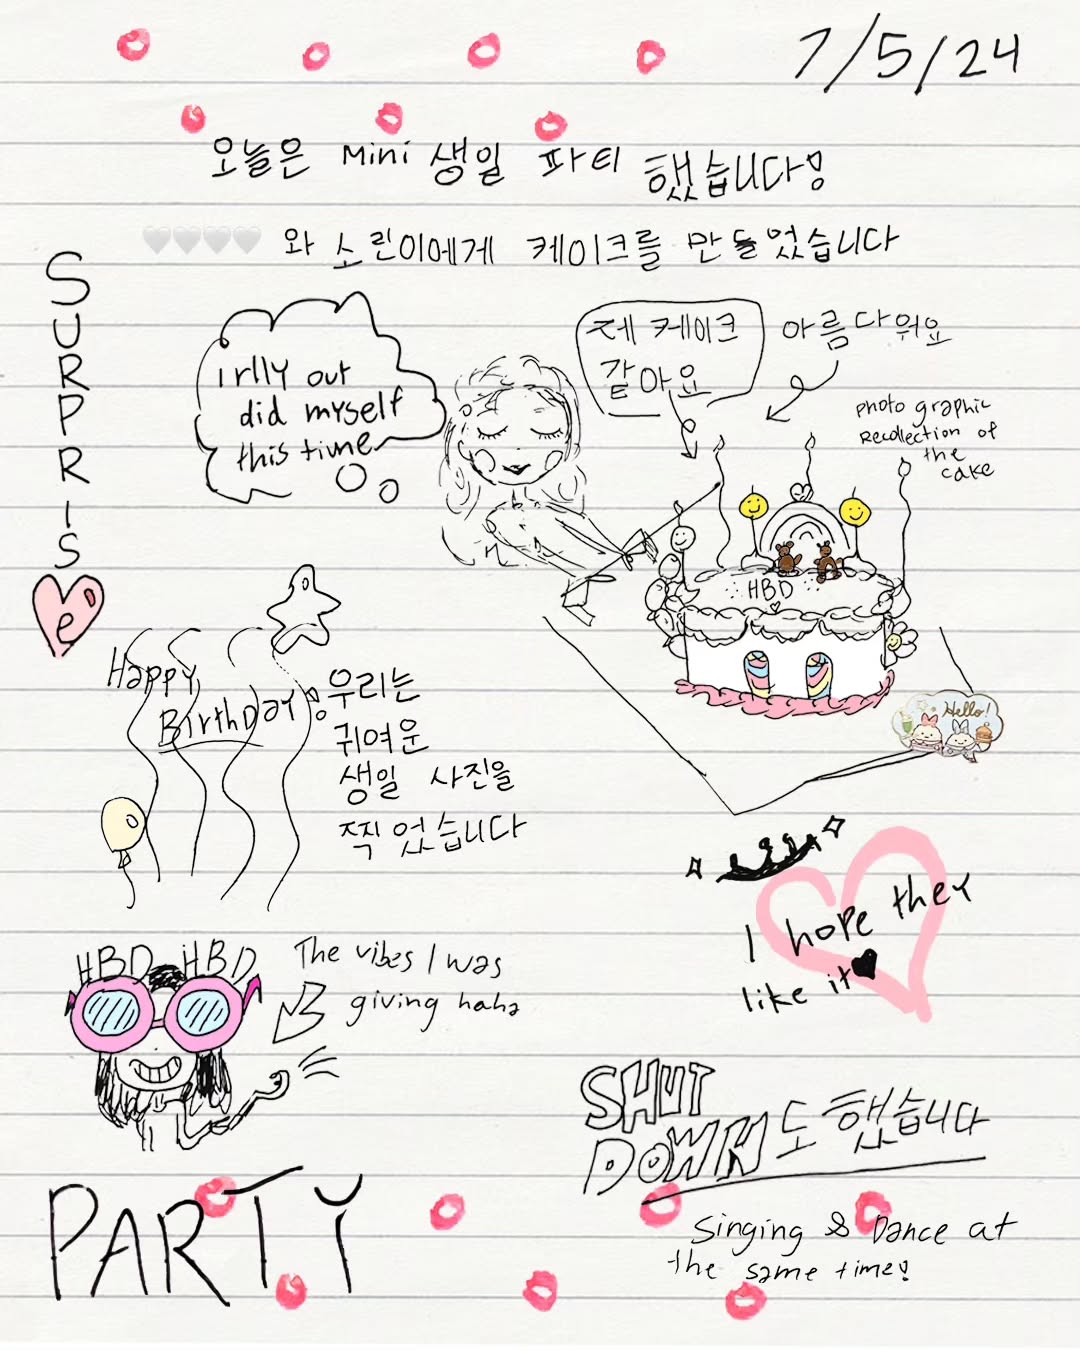 7/5/24
오늘은 Mini 생일 파티 했습니다!
🤍🤍🤍🤍 와 소린이에게 케이크를 만들었습니다
SURPRISe
i rlly out
did myself
this time
제 케이크
같아요
아름다워요
photo graphic
Recollection of
the
cake
HBD
Hello!
Happy
Birthday!
우리는
귀여운
생일 사진을
찍었습니다
I hope they
like it🖤
HBD HBD
The vibes I was
giving haha
SHUT
DOWN도 했습니다
Singing & Dance at
the same time!
PARTY